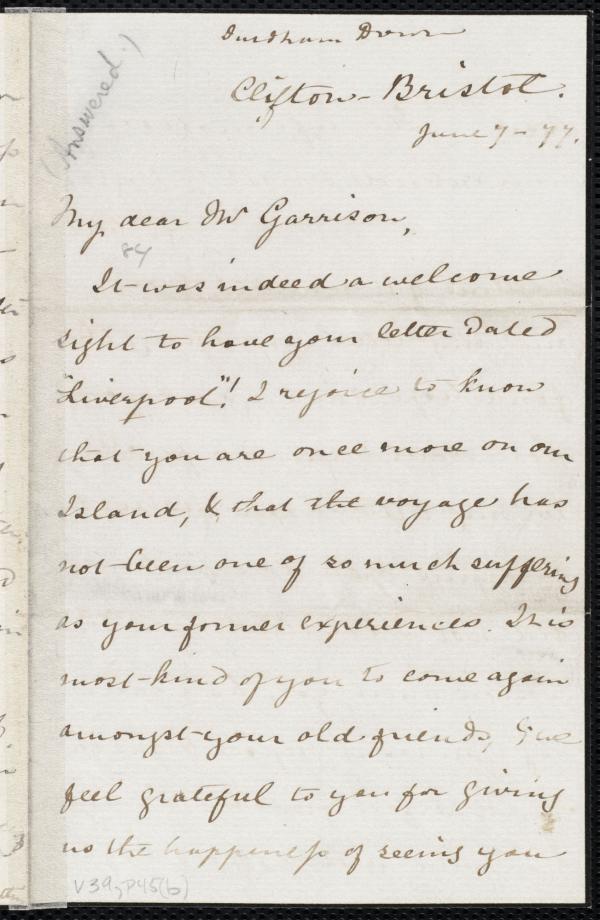 Durdham Down
Clifton - Bristol.
June 7 - 77.
(Answered.)
My dear Mr Garrison,
84
It was indeed a welcome
sight to have your letter dated
"Liverpool"! I rejoice to know
that you are once more on our
Island, & that the voyage has
not been one of so much suffering
as your former experiences. It is
most kind of you to come again
amongst your old friends, & we
feel grateful to you for giving
us the happiness of seeing you
V39, P45(b)